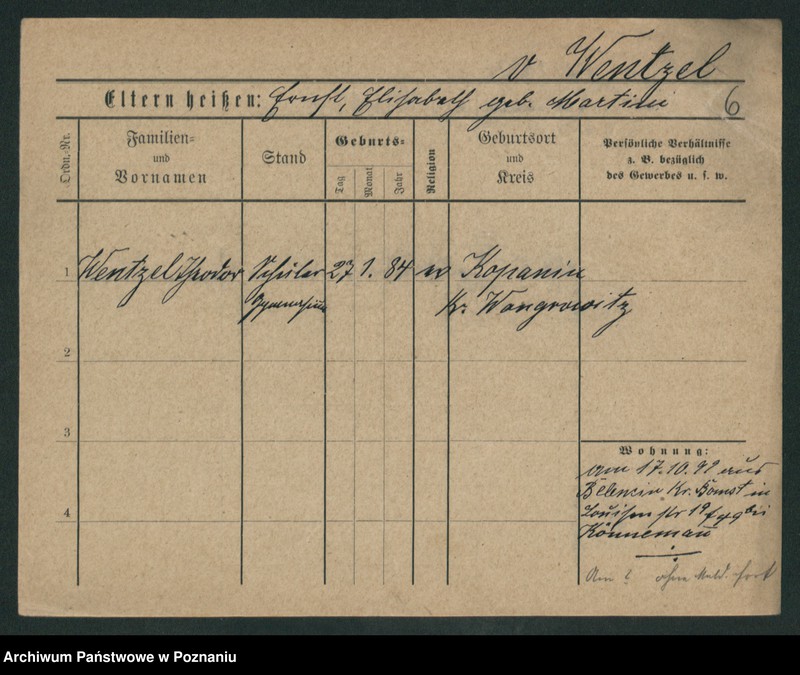 v Wentzel
Eltern heißen: Ernst, Elisabeth geb. Martini 6
Ordn.-Nr.
Familien- und Vornamen
Stand
Geburts-
Tag
Monat
Jahr
Religion
Geburtsort und Kreis
Persönliche Verhältnisse
z. B. bezüglich
des Gewerbes u. s. w.
1 Wentzel Theodor Schüler 27 1. 84 ev Kopanin
Gymnasium Kr. Wongrowitz
2
3
4
Wohnung:
am 17.10.99 aus
Belencin Kr. Bomst in
Louisen str 19 bei
Könnemann
Am ? ohne Meld. fort
Archiwum Państwowe w Poznaniu